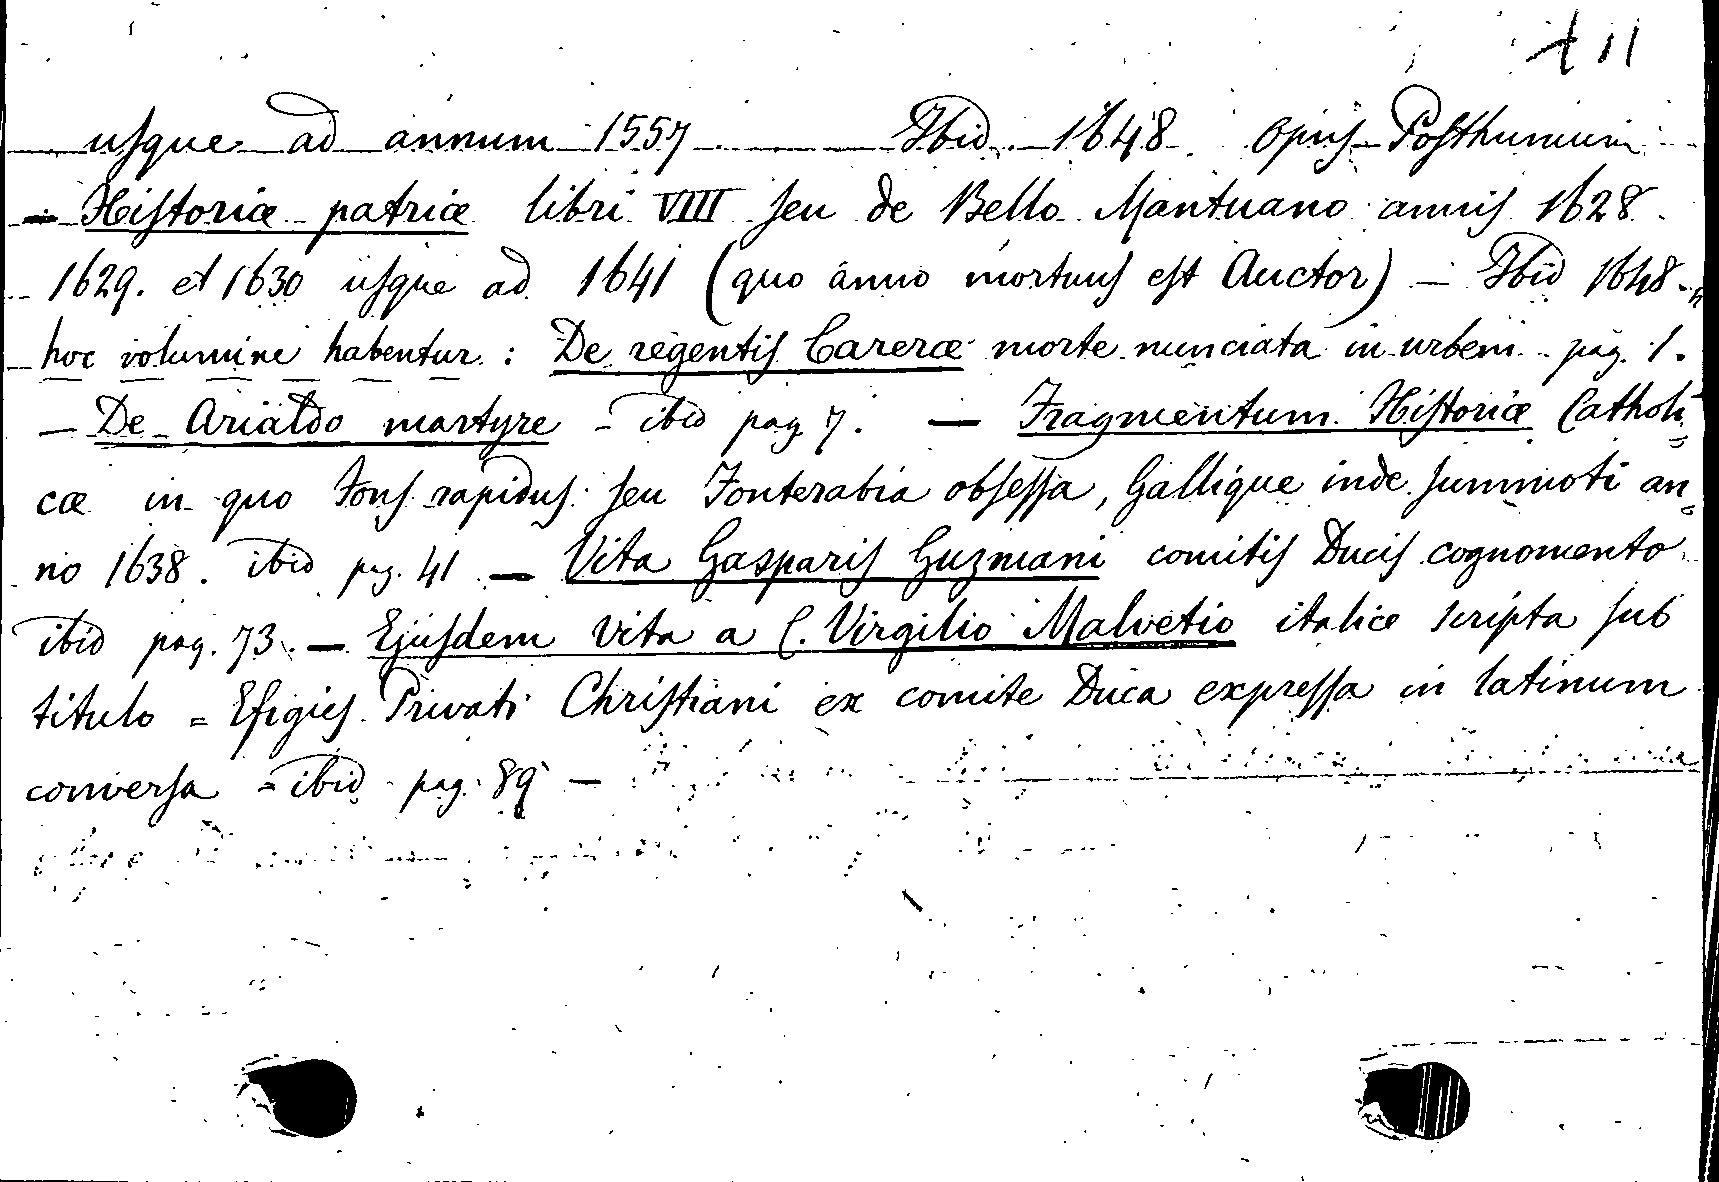 usque ad annum 1557 Ibid. 1648. Opus Posthumum
— Historiæ patriæ libri VIII seu de Bello Mantuano annis 1628.
1629. et 1630 usque ad 1641 (quo anno mortuus est Auctor) — Ibid 1648 -
hoc volumine habentur : De regentis Careræ morte nunciata in urbem pag. 1.
— De Arialdo martyre - ibid pag 7. — Fragmentum Historiæ Catholi=
cæ in quo Fons rapidus seu Fonterabia obsessa, Gallique inde summoti an=
no 1638. ibid pag. 41 — Vita Gasparis Guzmani comitis Ducis cognomento
ibid pag. 73. — Ejusdem vita a C. Virgilio Malvetio italice scripta sub
titulo = Efigies Privati Christiani ex comite Duca expressa in latinum
conversa = ibid pag. 89 —